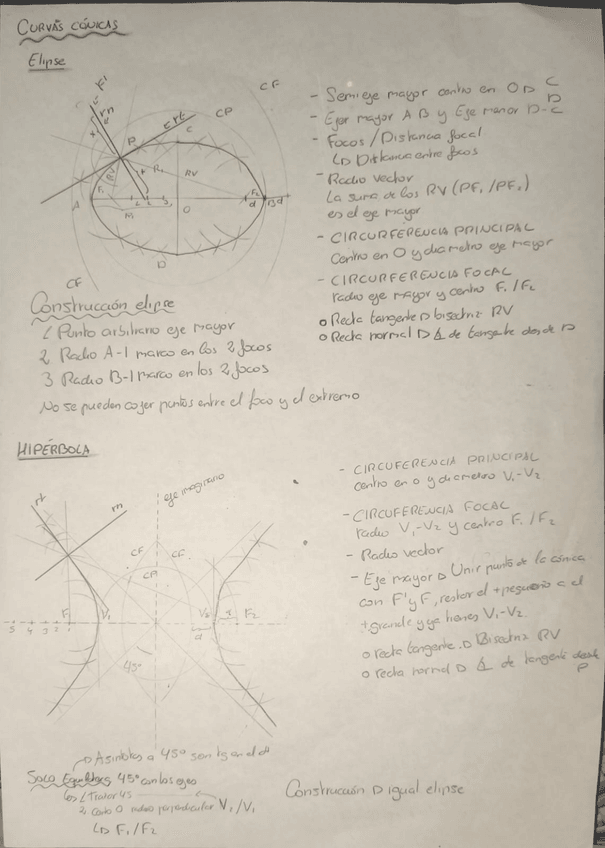 CURVAS CÓNICAS
Elipse
- Semieje mayor centro en O D C
D
- Ejer mayor AB y Eje menor D-C
- Focos / Distancia focal
Distancia entre focos
- Radio vector
La suma de los RV (PF₁/PF₂)
es el eje mayor
- CIRCURFERENCIA PRINCIPAL
Centro en O y diametro eje mayor
- CIRCURFERENCIA FOCAL
radio eje mayor y centro F₁/F₂
o Recta tangente D bisectriz RV
o Recta normal D de tangente desde P
F'
rn
P
rt
C
CP
CF
RV
RV
F₁
A
1 2 3
O
F₂
d
B
d
M
D
CF
Construcción elipse
1 Punto arbitrario eje mayor
2 Radio A-1 marco en los 2 focos
3 Radio B-1 marco en los 2 focos
No se pueden cojer puntos entre el foco y el extremo
HIPÉRBOLA
eje imaginario
rt
rn
CF
CF
CP
F₁
V₁
V₂
F₂
5 4 3 2 1
d
45°
- CIRCUFERENCIA PRINCIPAL
centro en o y diametro V₁-V₂
- CIRCUFERENCIA FOCAL
radio V₁-V₂ y centro F₁/F₂
- Radio vector
- Eje mayor D Unir punto de la cónica
con F' y F, restar el + pequeño a el
+ grande y ya tienes V₁-V₂
o recta tangente D Bisectriz RV
o recta normal D de tangente desde
P
Asintotas a 45° son tg en el
Solo Equiláteras 45° con los ejes
1 Trazar 45
2 Corto O perpendicular V₂/V₁
F₁/F₂
Construcción D igual elipse